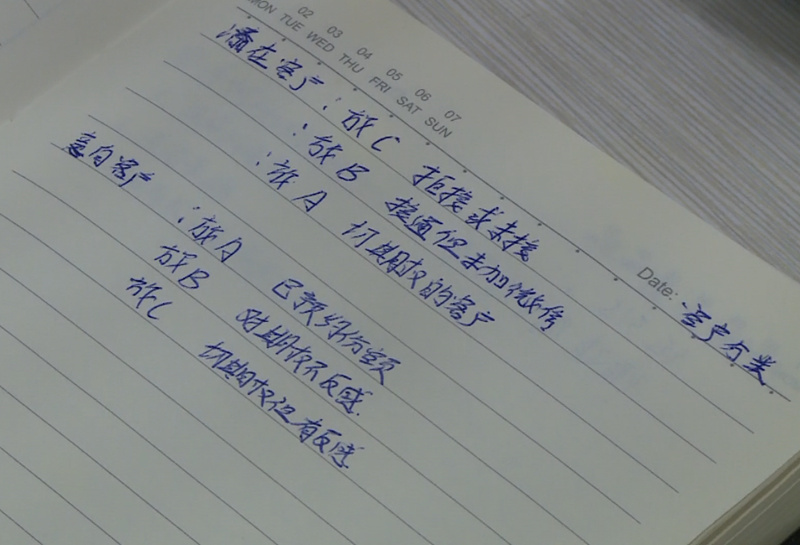 02 03 04 05 06 07
MON TUE WED THU FRI SAT SUN
Date: 客户分类
潜在客户：放C 拒接或未接
：放B 接通但未加微信
：放A 切期权的客户
意向客户：放A 已预约份额
放B 对期权不反感.
放C 切期权但有反感